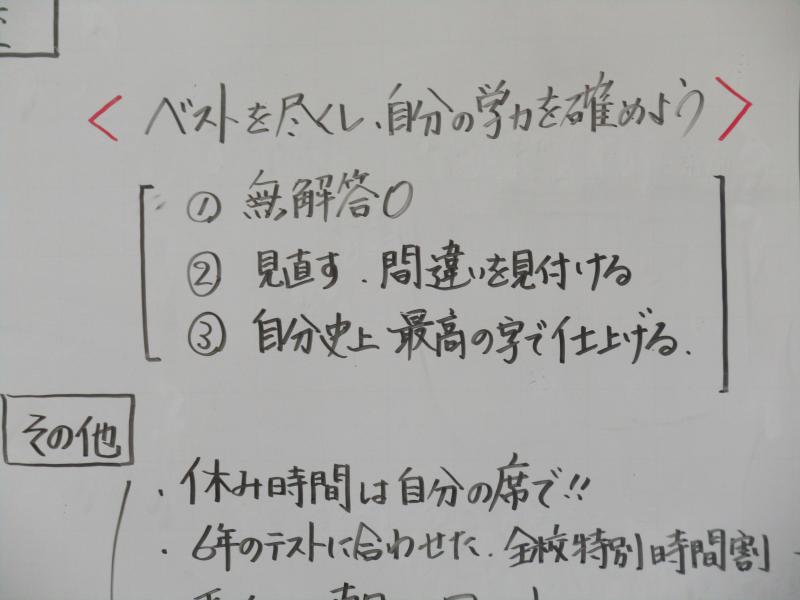 < ベストを尽くし、自分の学力を確めよう >
① 無解答0
② 見直す . 間違いを見付ける
③ 自分史上 最高の字で仕上げる.
その他
・休み時間は自分の席で!!
・6年のテストに合わせた、全校特別時間割